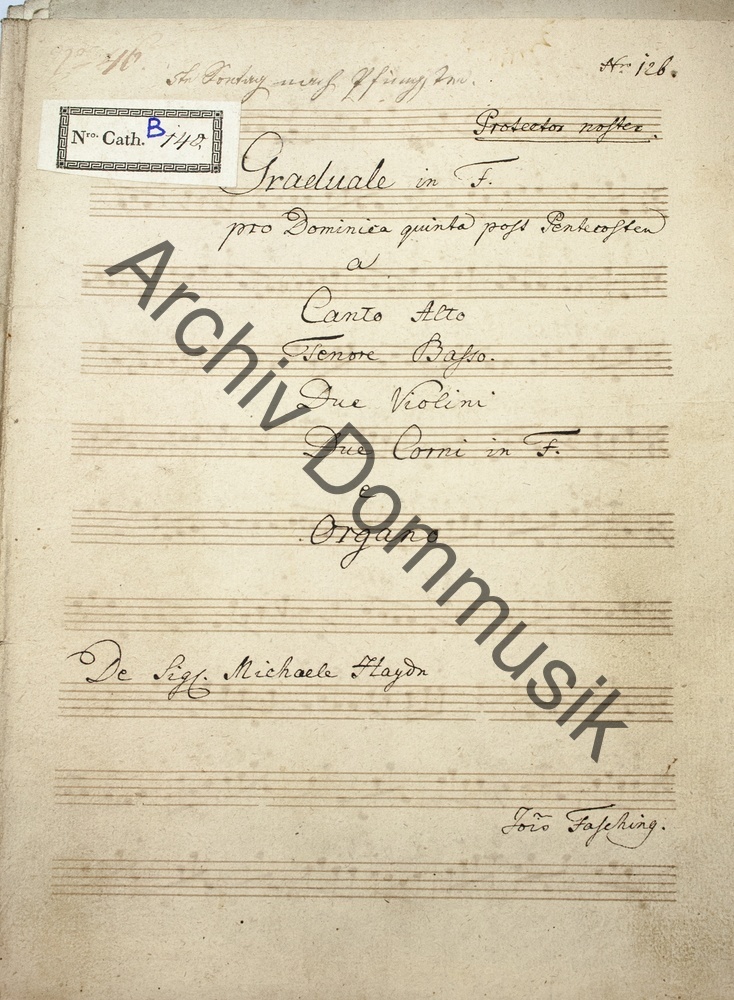 Nro 126.
5te Sontag nach Pfingsten.
Protector noster.
Nro. Cath. B 140.
Graduale in F.
pro Dominica quinta post Pentecosten
a
Canto Alto
Tenore Basso.
Due Violini
Due Corni in F.
e
Organo
De Sigl. Michaele Haydn
Fasching.
Archiv Dommusik